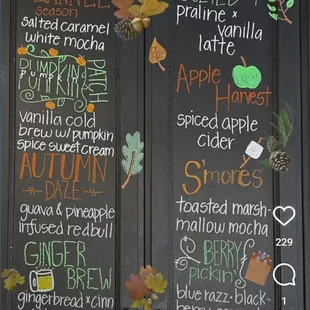 FLANNEL
season
salted caramel
white mocha
PUMPKIN
PATCH
vanilla cold
brew w/ pumpkin
spice sweet cream
AUTUMN
DAZE
guava & pineapple
infused redbull
GINGER
BREW
gingerbread x cinn
praline x
vanilla
latte
Apple
Harvest
spiced apple
cider
S'mores
toasted marsh-
mallow mocha
BERRY
pickin'
blue razz • black-
229
1